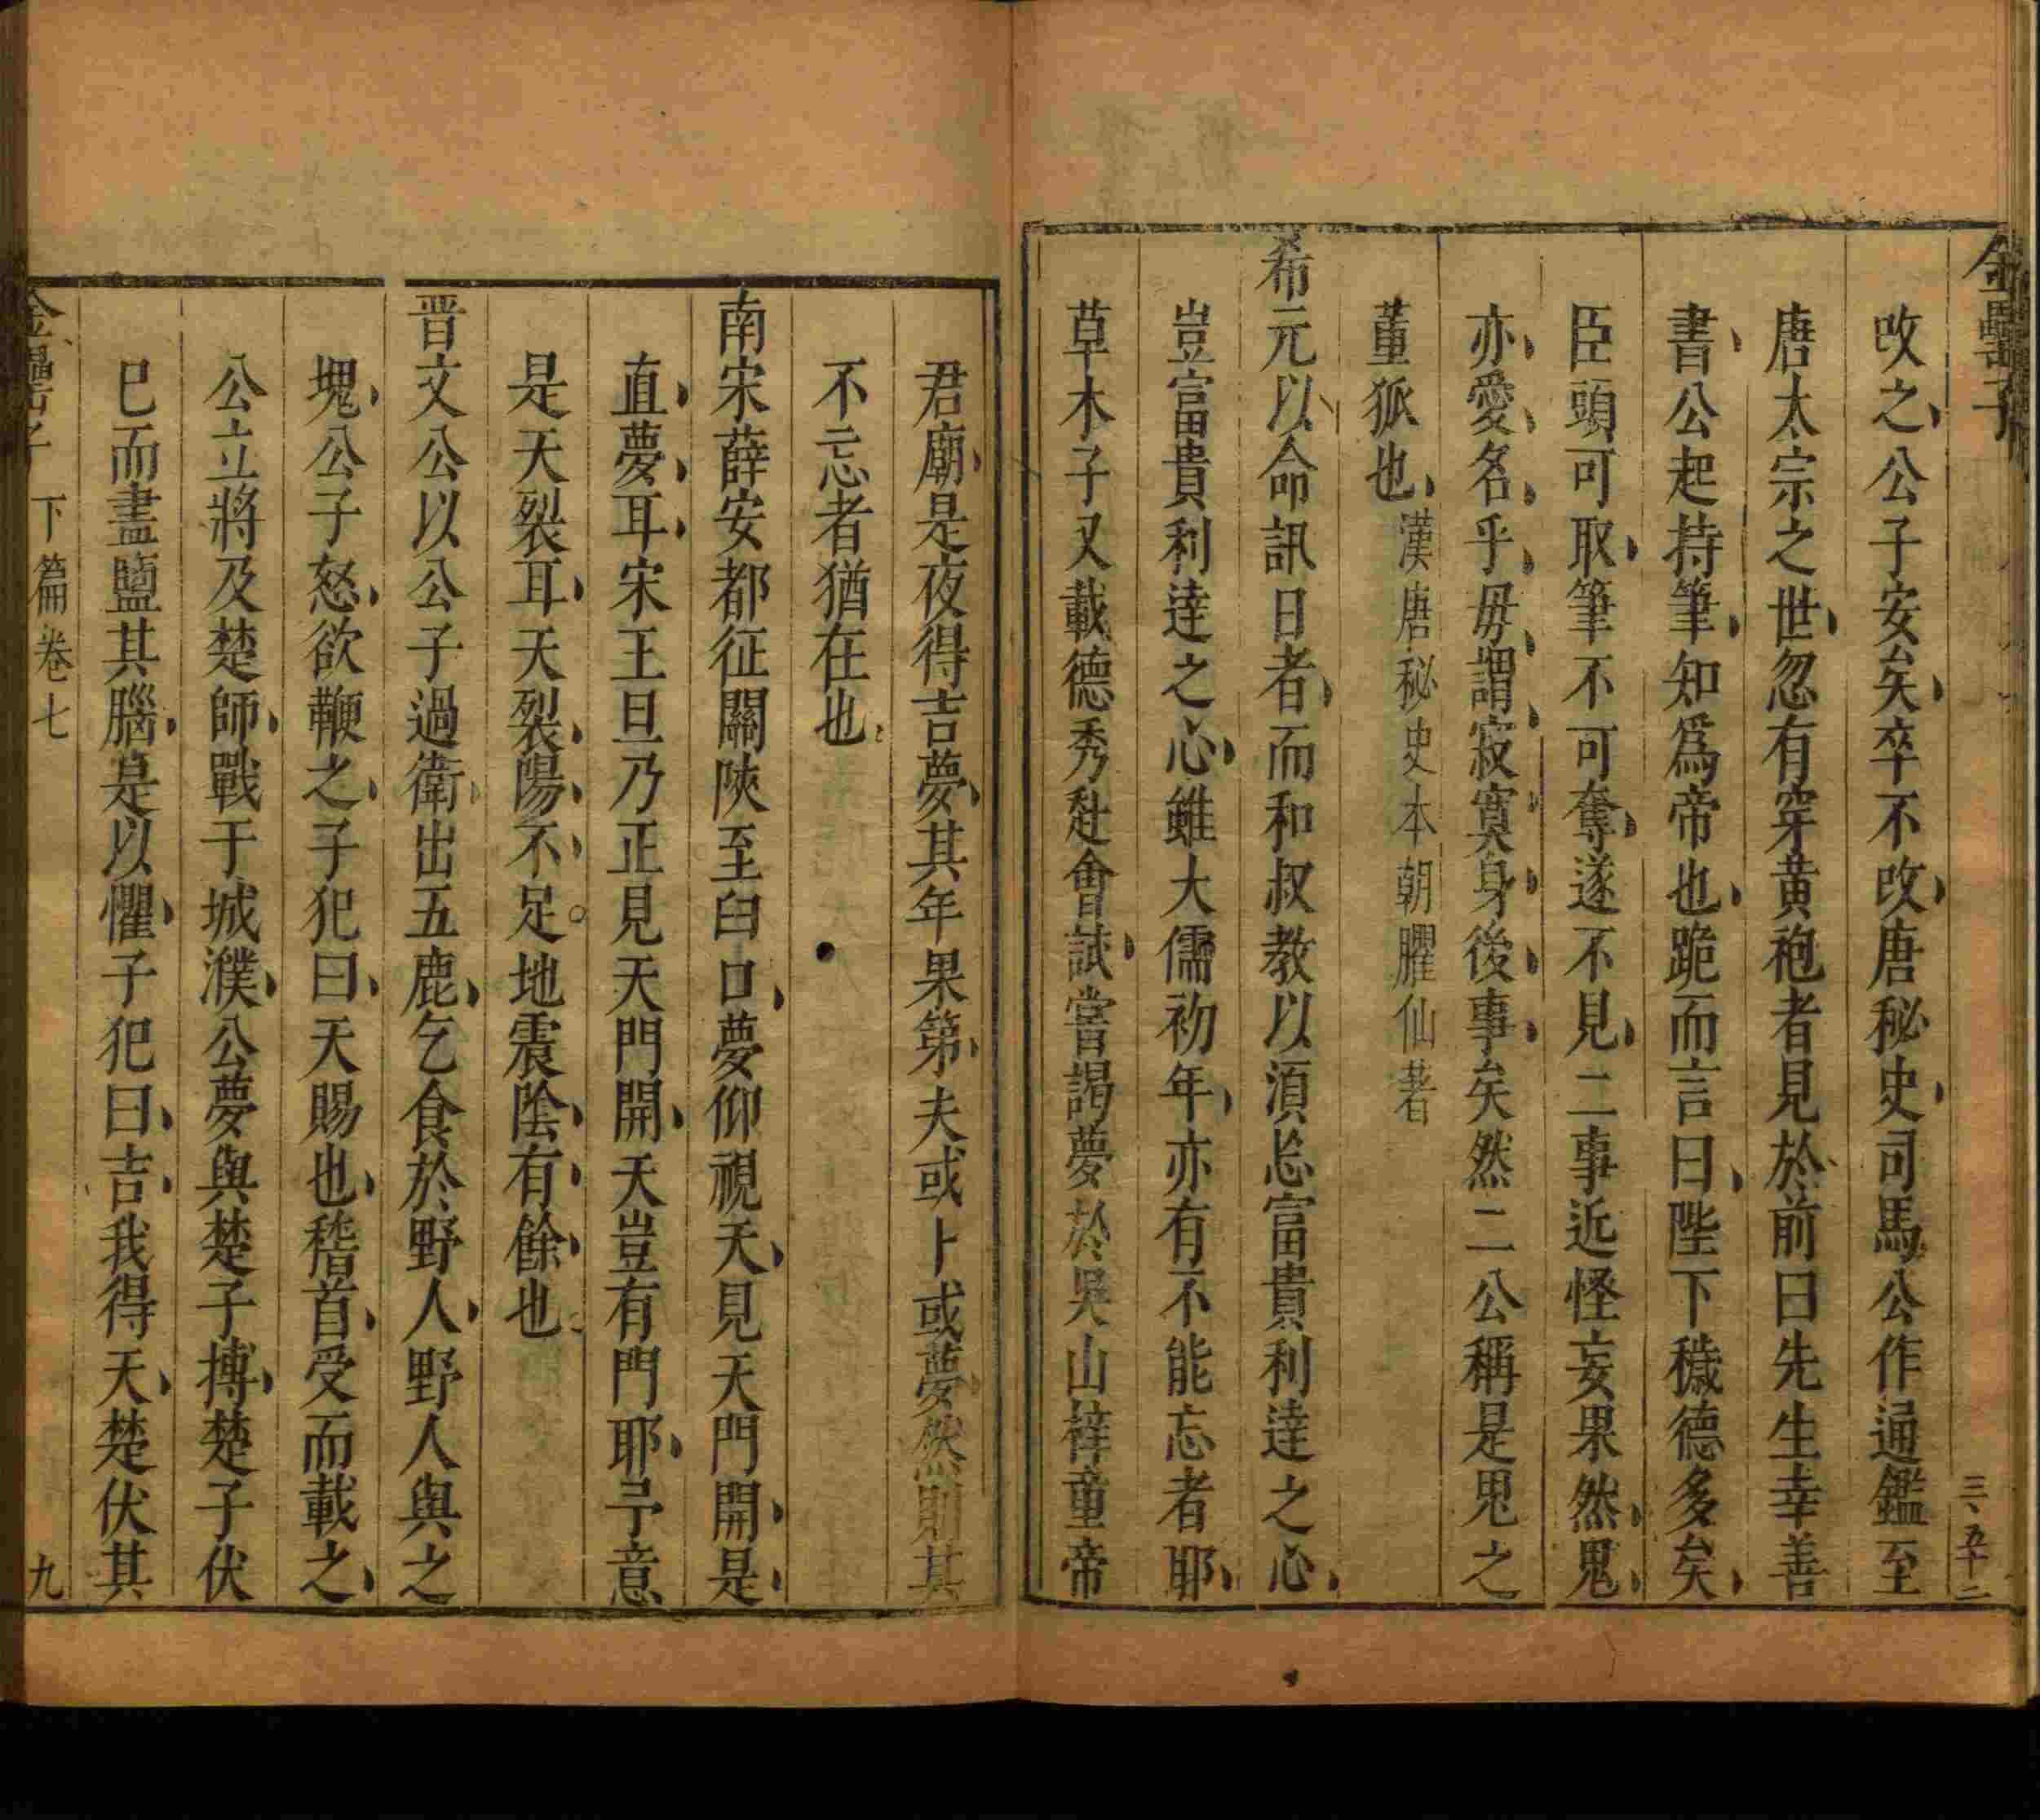 金罍子
三、五十二
改之公子安矣卒不改唐秘史司馬公作通鑑至
唐太宗之世忽有穿黄袍者見於前曰先生幸善
書公起持筆知爲帝也跪而言曰陛下穢德多矣
臣頭可取筆不可奪遂不見二事近怪妄果然鬼
亦愛名乎毋謂寂寞身後事矣然二公稱是鬼之
董狐也漢唐秘史本朝臞仙著
希元以命訊日者而和叔教以須忘富貴利達之心
豈富貴利達之心雖大儒初年亦有不能忘者耶
草木子又載德秀赴會試嘗謁夢於吳山梓童帝
君廟是夜得吉夢其年果第夫或卜或夢然則其
不忘者猶在也
南宋薛安都征關陝至臼口夢仰視天見天門開是
直夢耳宋王旦乃正見天門開天豈有門耶予意
是天裂耳天裂陽不足地震陰有餘也
晋文公以公子過衛出五鹿乞食於野人野人與之
塊公子怒欲鞭之子犯曰天賜也稽首受而載之
公立將及楚師戰于城濮公夢與楚子搏楚子伏
巳而盬其腦是以懼子犯曰吉我得天楚伏其
金罍子 下篇卷七
九